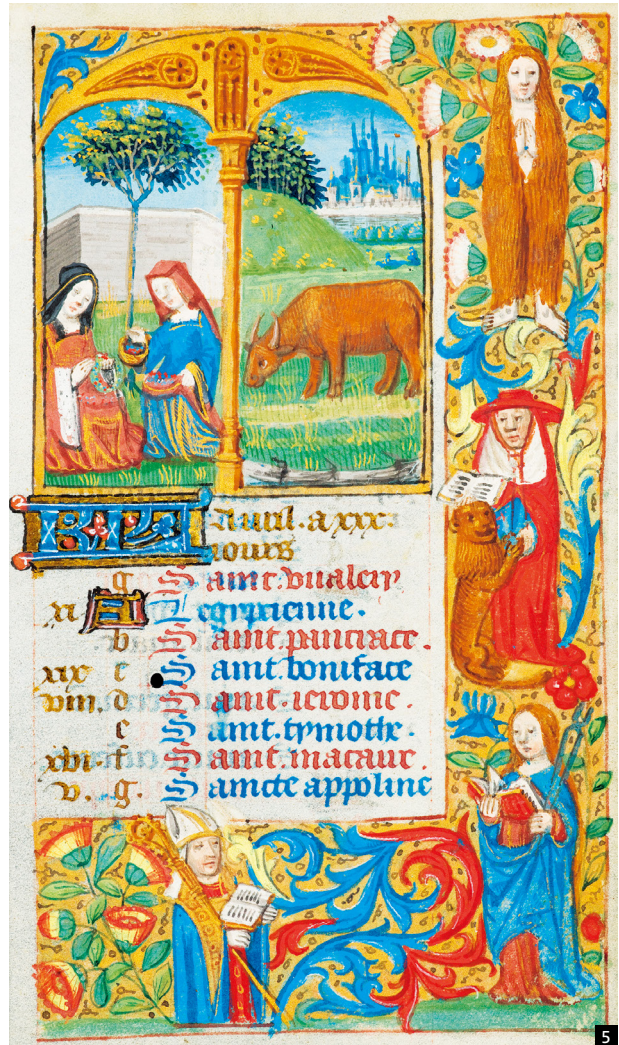 Auril. a xxx.
iours
g Saint. vualery
xi A Legiptienne.
b Saint. pancrace.
xix c Saint. boniface
viii. d Saint. ierome.
e Saint. tymothe.
xvi. f Saint. macaire.
v. g. Saincte appoline
5